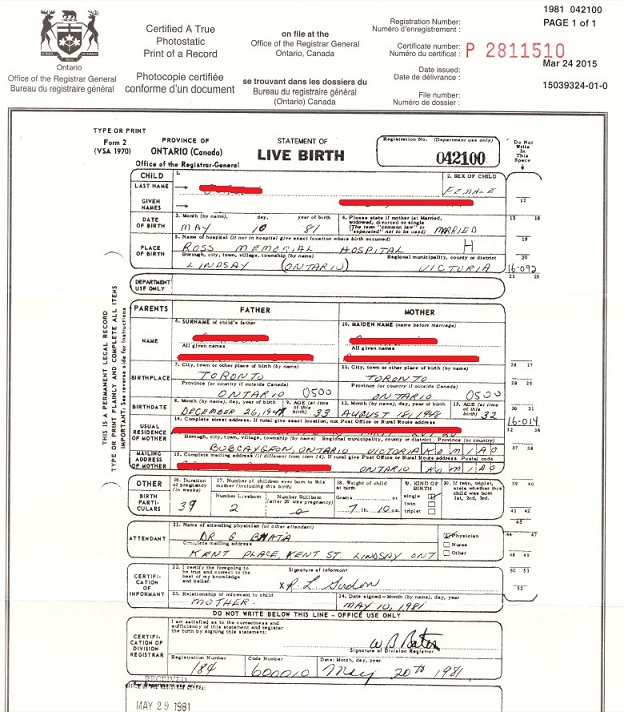 1981 042100
PAGE 1 of 1
Ontario
Office of the Registrar General
Bureau du registraire général
Certified A True
Photostatic
Print of a Record
Photocopie certifiée
conforme d'un document
on file at the
Office of the Registrar General
Ontario, Canada
se trouvant dans les dossiers du
Bureau du registraire général
(Ontario) Canada
Registration Number:
Numéro d'enregistrement :
Certificate number:
Numéro du certificat :
P 2811510
Date issued:
Date de délivrance :
Mar 24 2015
File number:
Numéro de dossier :
15039324-01-0
TYPE OR PRINT
Form 2
(VSA 1970)
PROVINCE OF
ONTARIO (Canada)
Office of the Registrar-General
STATEMENT OF
LIVE BIRTH
Registration No. (Department use only)
042100
Do Not Write in This Space
THIS IS A PERMANENT LEGAL RECORD
TYPE OR PRINT PLAINLY AND COMPLETE ALL ITEMS
IMPORTANT: (See reverse side for instructions)
CHILD
LAST NAME
1.
2. SEX OF CHILD
FEMALE
GIVEN NAMES
DATE OF BIRTH
3. Month (by name), day, year of birth
MAY 10 81
4. Please state if mother is: Married, widowed, divorced or single
(The term "common law" or "separated" not to be used)
MARRIED
PLACE OF BIRTH
5. Name of hospital (if not in hospital give exact location where birth occurred)
ROSS MEMORIAL HOSPITAL H
Borough, city, town, village, township (by name) Regional municipality, county or district
LINDSAY (ONTARIO) VICTORIA 16-092
DEPARTMENT USE ONLY
PARENTS
FATHER
MOTHER
NAME
6. SURNAME of child's father
All given names
10. MAIDEN NAME (name before marriage)
All given names
BIRTHPLACE
7. City, town or other place of birth (by name)
TORONTO
Province (or country if outside Canada)
ONTARIO 0500
11. City, town or other place of birth (by name)
TORONTO
Province (or country if outside Canada)
ONTARIO 0500
BIRTHDATE
8. Month (by name), day, year of birth
DECEMBER 26, 1947
9. AGE (at time of this birth)
33
12. Month (by name), day, year of birth
AUGUST 18, 1948
13. AGE (at time of this birth)
32
16-014
USUAL RESIDENCE OF MOTHER
14. Complete street address. If rural give exact location, not Post Office or Rural Route address
Borough, city, town, village, township (by name) Regional municipality, county or district Province (or country)
BOBCAYGEON, ONTARIO VICTORIA K0M1A0
MAILING ADDRESS OF MOTHER
15. Complete mailing address (if different from item 14). If rural give Post Office or Rural Route address Postal code
ONTARIO K0M1A0
OTHER BIRTH PARTICULARS
16. Duration of pregnancy (in weeks)
39
17. Number of children ever born to this mother (including this birth)
Number liveborn
2
Number stillborn (after 20 weeks pregnancy)
18. Weight of child at birth
Grams or
7 lb 10 oz
19. KIND OF BIRTH
single
twin
triplet
20. If twin, triplet, state whether this child was born 1st, 2nd, 3rd.
ATTENDANT
21. Name of attending physician (or other attendant)
DR G BHATA
Physician
Nurse
Other
Complete mailing address
KENT PLACE, KENT ST. LINDSAY ONT
CERTIFICATION OF INFORMANT
22. I certify the foregoing to be true and correct to the best of my knowledge and belief:
Signature of Informant
23. Relationship of informant to child
MOTHER
24. Date signed—Month (by name), day, year
MAY 10, 1981
DO NOT WRITE BELOW THIS LINE - OFFICE USE ONLY
CERTIFICATION OF DIVISION REGISTRAR
I am satisfied as to the correctness and sufficiency of this statement and register the birth by signing this statement:
Signature of Division Registrar
Registration Number
184
Code Number
600010
Date: Month, day, year
May 20th 1981
RECEIVED
MAY 29 1981